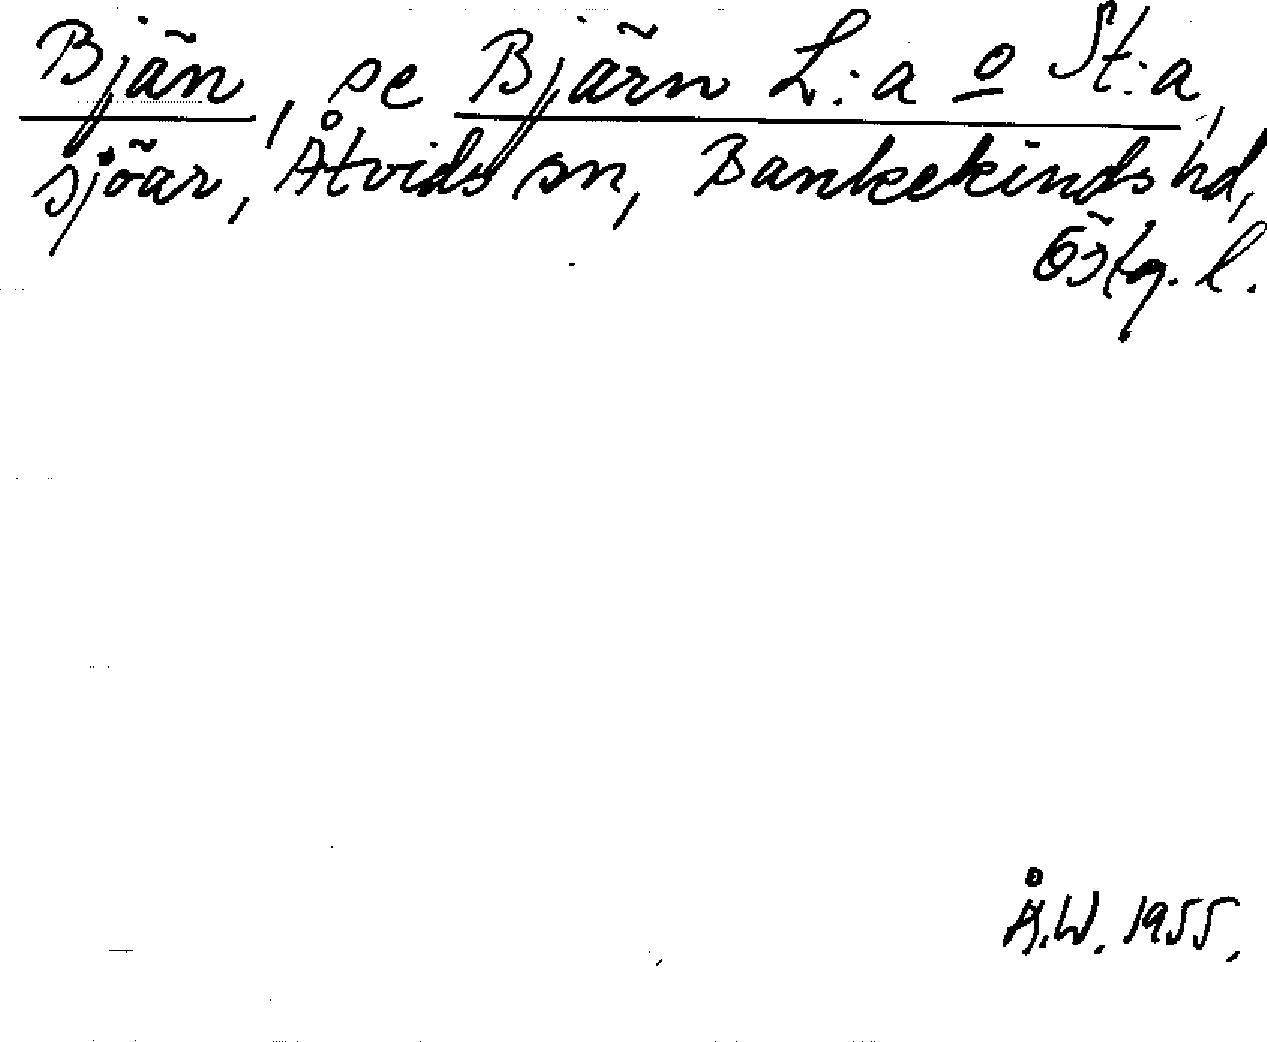 Bjän, se Bjärn L:a o St:a,
sjöar, Åtvids sn, Bankekinds hd,
Östg. l.
Å.W. 1955.